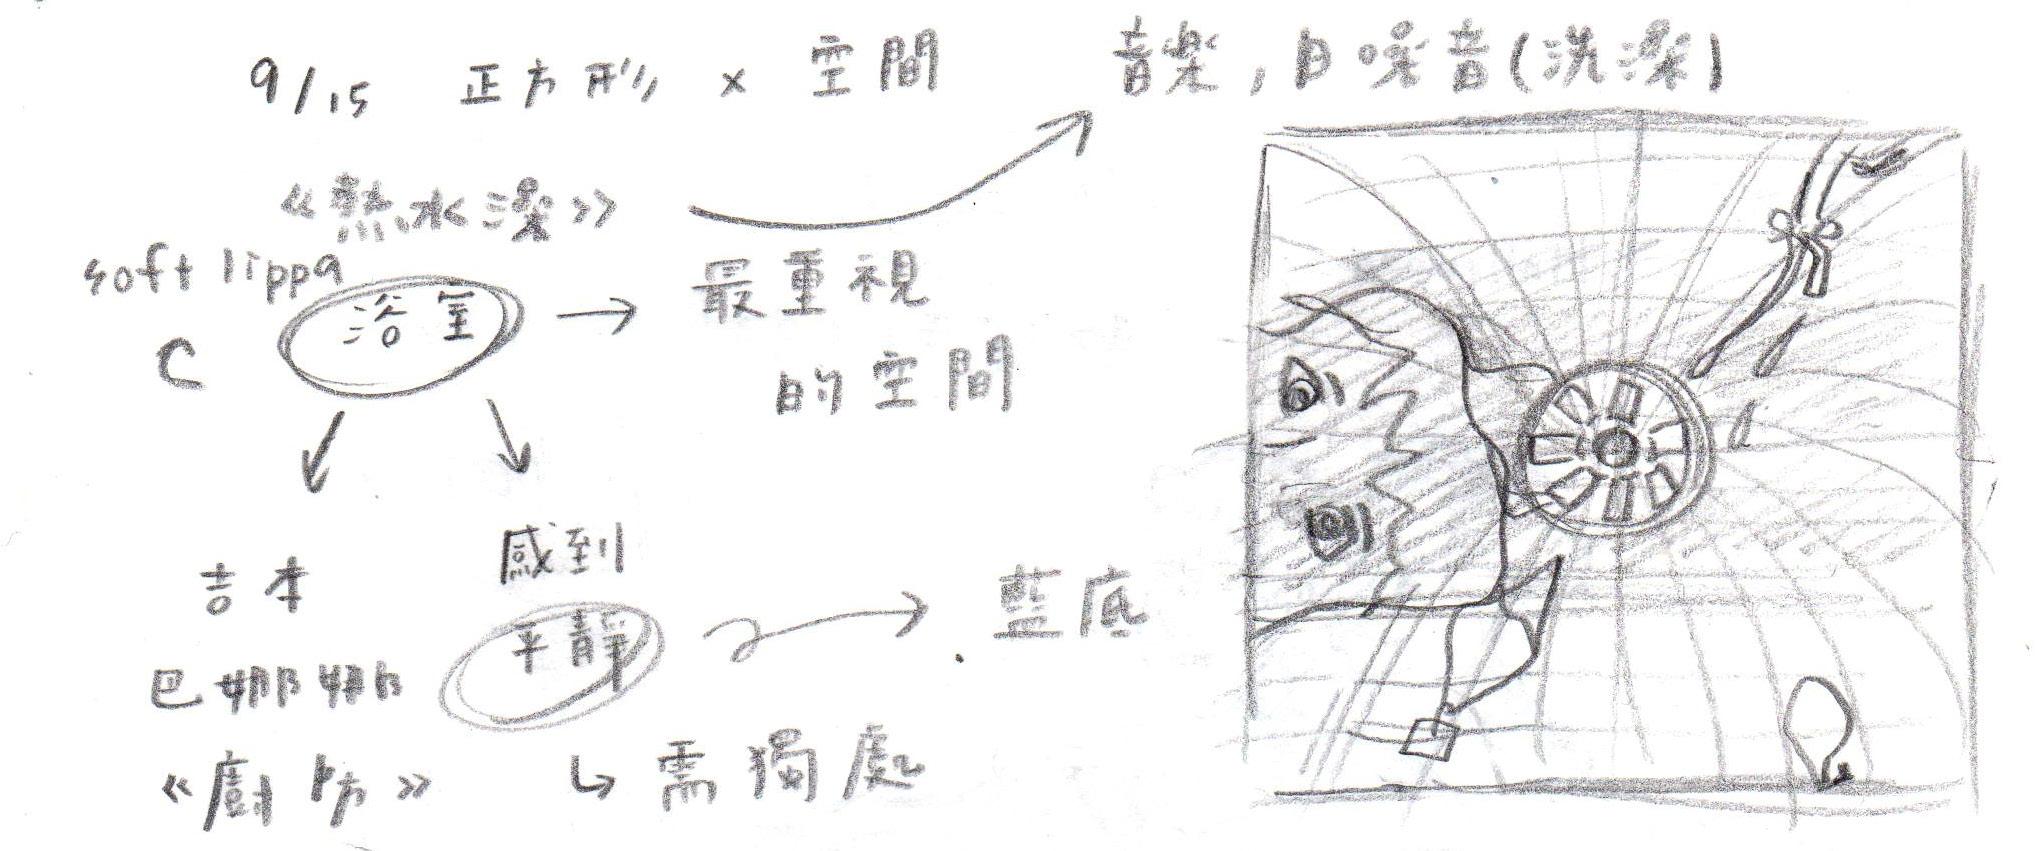 9/15 正方形 × 空間
音楽,白噪音(洗澡)
《熱水澡》
soft lippa
浴室
C
最重視
的空間
感到
平靜
藍底
吉本
巴娜娜
《廚房》
↳ 需獨處